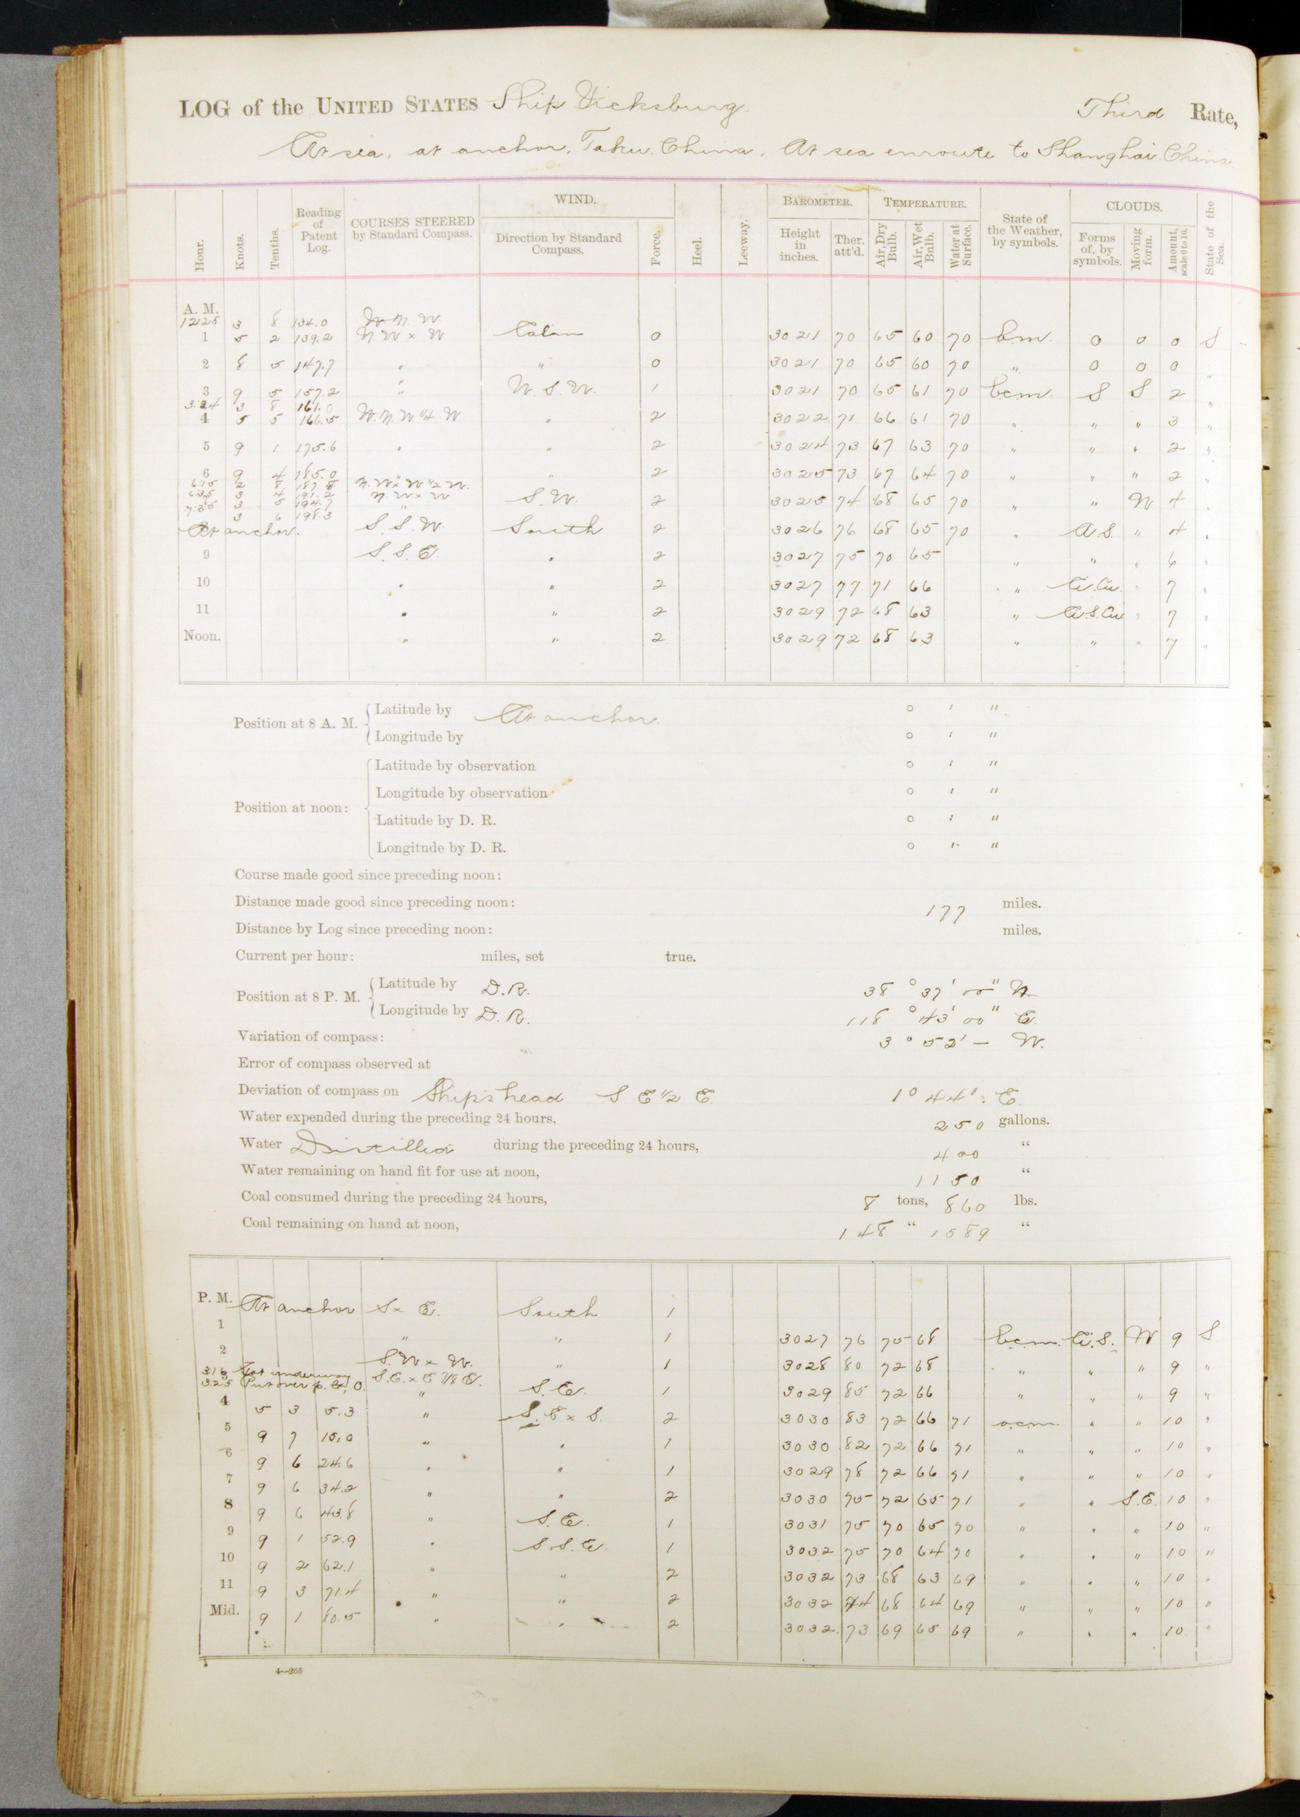 LOG of the UNITED STATES Ship Vicksburg. Third Rate,
At sea, at anchor, Taku China, At sea enroute to Shanghai China
Hour. Knots. Tenths. Reading of Patent Log. COURSES STEERED by Standard Compass. WIND. Direction by Standard Compass. Force. Heel. Leeway. BAROMETER. Height in inches. Ther. att'd. TEMPERATURE. Air, Dry Bulb. Air, Wet Bulb. Water at Surface. State of the Weather, by symbols. CLOUDS. Forms of, by symbols. Moving form. Amount, scale 0 to 10. State of the Sea.
A. M.
12 25 3 8 134.0 W. N. W
1 5 2 139.2 N W x W Calm 0 30 21 70 65 60 70 b.m. 0 0 0 S
2 8 5 147.7 " " 0 30 21 70 65 60 70 " 0 0 0 "
3 9 5 157.2 " W. S. W. 1 30 21 70 65 61 70 b.c.m. S S 2 "
3:24 3 8 161.0
4 5 5 166.5 W. N. W 1/4 W. " 2 30 22 71 66 61 70 " " " 3 "
5 9 1 175.6 " " 2 30 24 73 67 63 70 " " " 2 "
6 9 4 185.0 " " 2 30 25 73 67 64 70 " " " 2 "
6:15 2 8 187.8 N. W x W 1/2 W.
6:35 3 4 191.2 N W x W S. W. 2 30 25 74 68 65 70 " " W 4 "
3 5 194.7 "
7:35 3 6 198.3
At anchor. S. S. W. South 2 30 26 76 68 65 70 " A. S. " 4 "
9 S. S. E. " 2 30 27 75 70 65 " " " 6 "
10 " " 2 30 27 77 71 66 " Ci. Cu. " 7 "
11 " " 2 30 29 72 68 63 " A. S. Cu. " 7 "
Noon. " " 2 30 29 72 68 63 " " " 7 "
Position at 8 A. M. Latitude by At anchor ° ' "
Longitude by ° ' "
Position at noon: Latitude by observation ° ' "
Longitude by observation ° ' "
Latitude by D. R. ° ' "
Longitude by D. R. ° ' "
Course made good since preceding noon:
Distance made good since preceding noon: 177 miles.
Distance by Log since preceding noon: miles.
Current per hour: miles, set true.
Position at 8 P. M. Latitude by D. R. 38 ° 37 ' 00 " N.
Longitude by D. R. 118 ° 43 ' 00 " E.
Variation of compass: 3 ° 52 ' — W.
Error of compass observed at
Deviation of compass on Ship's head S E 1/2 E. 1° 44' : E.
Water expended during the preceding 24 hours, 250 gallons.
Water Distilled during the preceding 24 hours, 400 "
Water remaining on hand fit for use at noon, 1150 "
Coal consumed during the preceding 24 hours, 8 tons, 860 lbs.
Coal remaining on hand at noon, 148 " 1589 "
P. M. At anchor S x E. South 1
1 " " 1 30 27 76 70 68 b.c.m. Ci. S. W 9 S
2 S. W x W. " 1 30 28 80 72 68 " " " 9 "
3 16 Got underway
3 25 Put over p. l. 0. S. E. x E 7/8 E. S. E. 1 30 29 85 72 66 " " " 9 "
4 5 3 5.3 " S. E x S. 2 30 30 83 72 66 71 o.c.m. " " 10 "
5 9 7 15.0 " " 1 30 30 82 72 66 71 " " " 10 "
6 9 6 24.6 " " 1 30 29 78 72 66 71 " " " 10 "
7 9 6 34.2 " " 2 30 30 75 72 65 71 " " S. E. 10 "
8 9 6 43.8 " S. E. 1 30 31 75 70 65 70 " " " 10 "
9 9 1 52.9 " S. S. E. 1 30 32 75 70 64 70 " " " 10 "
10 9 2 62.1 " " 2 30 32 73 68 63 69 " " " 10 "
11 9 3 71.4 " " 2 30 32 74 68 64 69 " " " 10 "
Mid. 9 1 80.5 " " 2 30 32 73 69 65 69 " " " 10 "
4—265